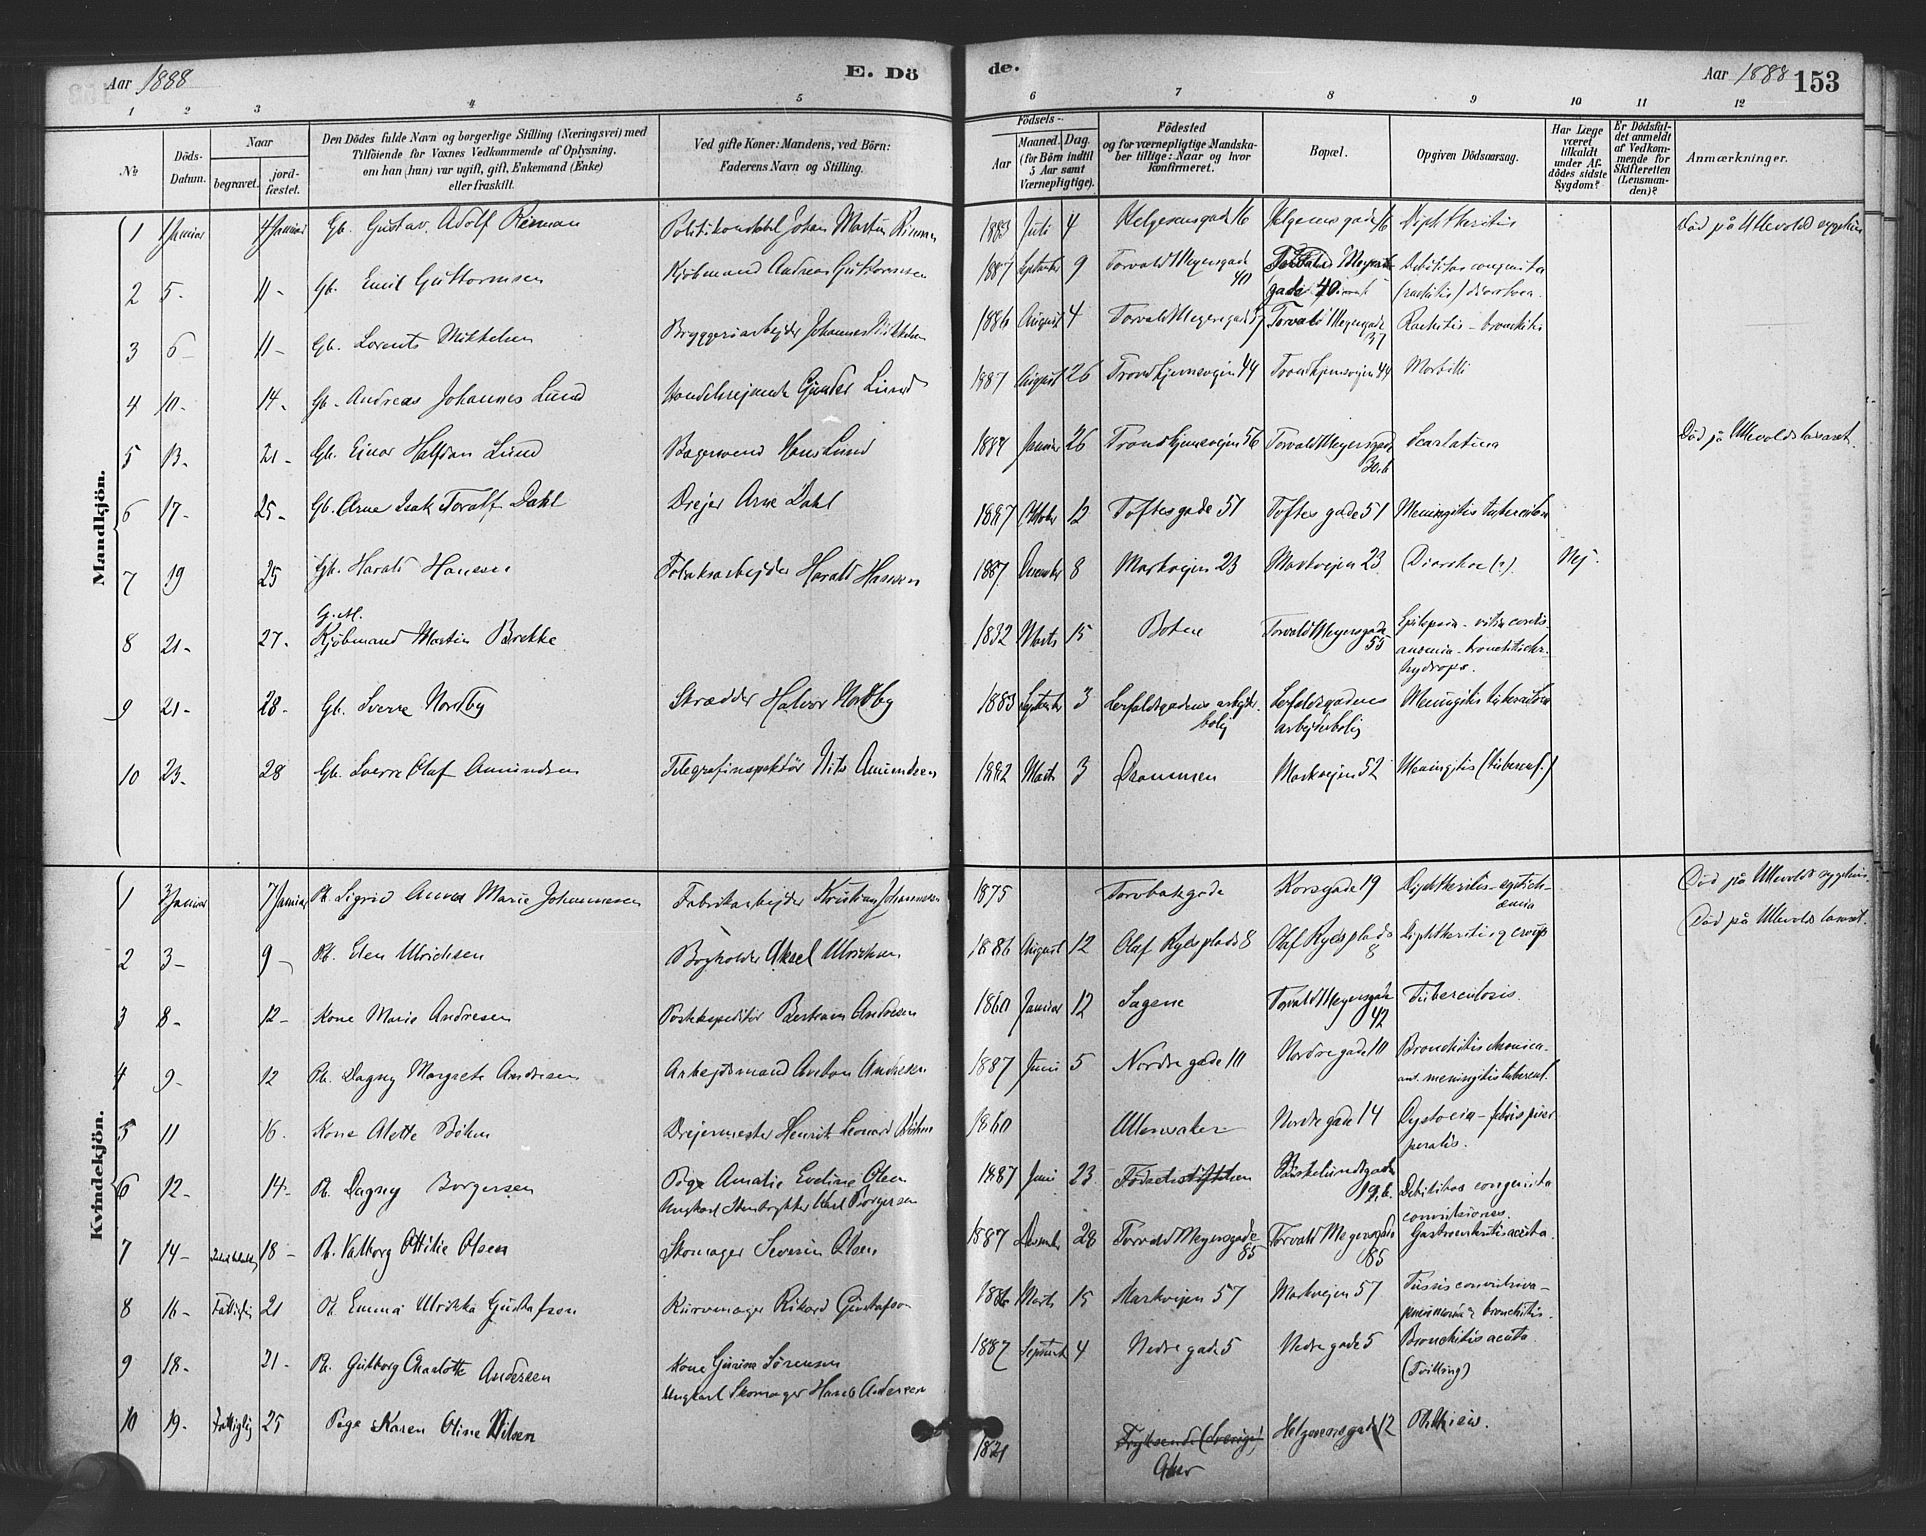 Aar 1888
E. Dö
de.
Aar 1888
153
1 2 3 4 5 6 7 8 9 10 11 12
No
Döds-Datum.
Naar
begravet.
jord-fæstet.
Den Dödes fulde Navn og borgerlige Stilling (Næringsvei) med
Tilföiende for Voxnes Vedkommende af Oplysning.
om han (hun) var ugift, gift, Enkemand (Enke)
eller fraskilt.
Ved gifte Koner: Mandens, ved Börn:
Faderens Navn og Stilling.
Födsels-
Aar
Maaned.
(for Börn indtil
5 Aar samt
Værnepligtige).
Dag.
Födested
og for værnepligtige Mandska-
ber tillige: Naar og hvor
konfirmeret.
Bopæl.
Opgiven Dödsaarsag.
Har Læge
været
tilkaldt
under Af-
dödes sidste
Sygdom?
Er Dödsfal-
det anmeldt
af Vedkom-
mende for
Skifteretten
(Lensman-
den)?
Anmærkninger.
Mandkjön.
1 1 Januar 4 Januar Gb. Gustav Adolf Rieman Politikonstabel Johan Martin 1883 Juli 4 Helgesensgade 16 Helgesensgade 16 Diphtheritis Død på Ullevolds sygehus
2 5- 11- Gb. Emil Guttormsen Kjøbmand Andreas Guttormsen 1887 September 9 Torvald Meyersgade 40 Torvald Meyers gade 40 Debilitas congenita (rachitis) diarrhoea.
3 6- 11- Gb. Lorents Mikkelsen Bryggeriarbejder Johannes Mikkelsen 1886 August 4 Torvald Meyersgade 37 Torvald Meyersgade 37 Rachitis - bronchitis
4 10- 14- Gb. Andreas Johannes Lund Handelsrejsende Gunder Lund 1887 August 26 Trondhjemsvejen 44 Trondhjemsvejen 44 Morbilli
5 13- 21- Gb. Einar Halfdan Lund Bagersvend Hans Lund 1884 Januar 26 Trondhjemsvejen 56 Torvald Meyersgade 30.b Scarlatina Død på Ullevolds lasaret.
6 17- 25- Gb. Arne Isak Toralf Dahl Drejer Arne Dahl 1887 Oktober 12 Toftesgade 51 Toftes gade 51 Meningitis tuberculosa
7 19 25 Gb. Harald Hansen Fabrikarbejder Harald Hansen 1887 December 8 Markvejen 23 Markvejen 23. Diarrhoe (?). Nej.
8 21- 27- G.M. Kjøbmand Martin Brekke 1832 Marts 15 Botne Torvald Meyersgade 55 Epilepsia - vitium cordis - anæmia - bronchitis chr. hydrops.
9 21- 28- Gb. Sverre Nordby Skrædder Halvor Nordby 1883 September 3 Lerfaldsgadens arbejderbolig Lerfaldsgadens arbejderbolig Meningitis tuberculosa
10 23- 28 Gb. Sverre Olaf Amundsen Telegrafinspektør Nils Amundsen 1882 Marts 3 Drammen Markvejen 52 Meningitis (tubercul.)
Kvindekjön.
1 3 Januar 7 Januar Pb. Sigrid Anna Marie Johannesen Fabrikarbejder Kristian Johannesen 1875 Torvbakgade Korsgade 19 Diphtheritis - septichæmia Død på Ullevolds sygehus.
2 3- 9- Pb. Elen Ulrichsen Bogholder Aksel Ulrichsen 1886 August 12 Olaf Ryes plads 8 Olaf Ryes plads 8 Diphtheritis croup Død på Ullevolds lasaret.
3 8- 12- Kone Marie Andresen Postexpeditør Bertram Andresen 1860 Januar 12 Sagene Torvald Meyersgade 42 Tuberculosis.
4 9- 12 Pb. Dagny Margrete Andresen Arbejdsmand Anton Andresen 1887 Juni 5 Nordregade 10 Nordregade 10 Bronchitis chronica - ant. meningitis tubercul.
5 11 16. Kone Alette Bøhm Drejermester Henrik Leonard Bøhm 1860 Ullensaker Nordregade 14 Dystocia - febris puerperalis.
6 12- 14- Pb. Dagny Borgersen Pige Amalie Eveline Olsen Ungkarl Stenhugger Karl Borgersen 1887 Juni 23 Fødselsstiftelsen Birkelundsgade 19.b. Debilitas congenita convulsiones.
7 14- 18- Pb. Valborg Ottilie Olsen Skomager Severin Olsen 1887 December 28 Torvald Meyersgade 85 Torvald Meyersgade 85 Gastroenteritis acuta.
8 16- Fattiglig 21 Pb. Emma Ulrikka Gustafson Kurvmager Rikard Gustafson 1886 Marts 15 Markvejen 57 Markvejen 57 Tussis convulsiva - pneumonia & bronchitis.
9 18- 21- Pb. Gulborg Charlotte Andersen Kone Gurine Sørensen Ungkarl Skomager Hans Andersen 1887 September 4 Nedregade 5 Nedre gade 5 Bronchitis acuta (Tvilling)
10 19- Fattiglig 25 Pige Karen Oline Nilsen 1821 Fryksende (Sverige) Aker Helgesensgade 12 Phthisis.